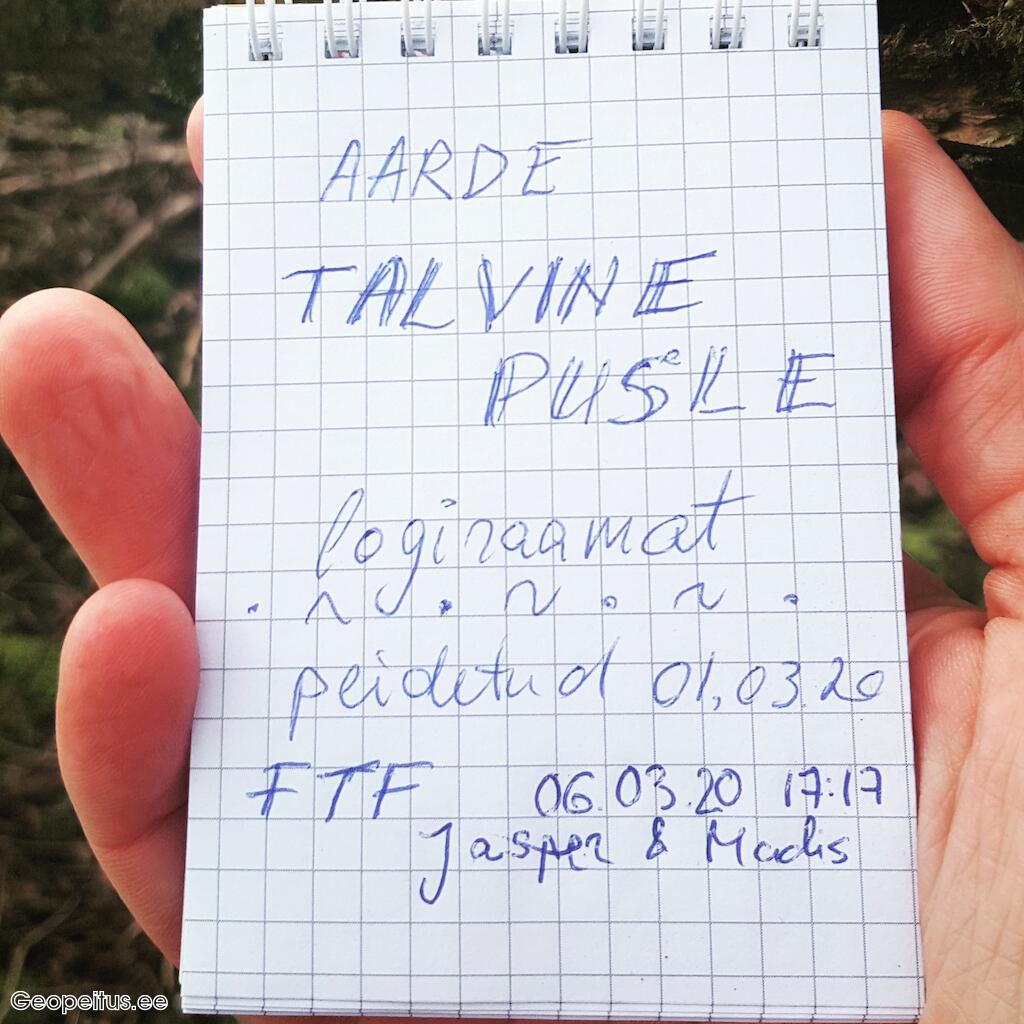 AARDE
TALVINE
PUSLE
logiraamat
. ~ . ~ . ~ .
peidetud 01.03.20
FTF 06.03.20 17:17
Jasper & Madis
Geopeitus.ee